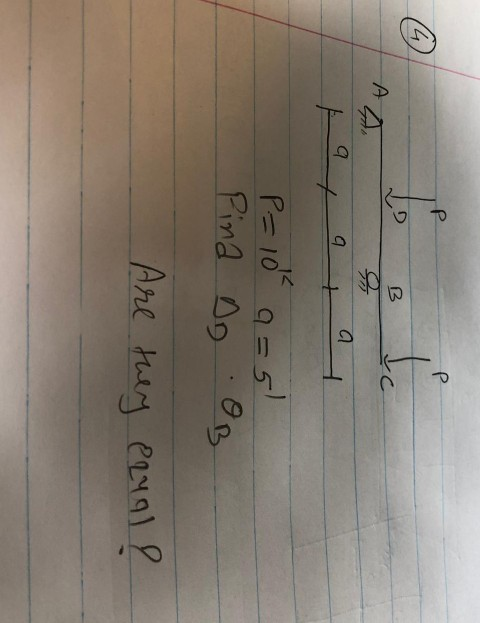 4
P P
A D B C
a a a
P = 10ᵏ a = 5'
Find Δ_D . θ_B
Are they equal?